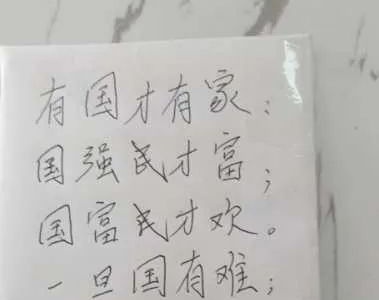 有国才有家；
国强民才富；
国富民才欢。
一旦国有难；